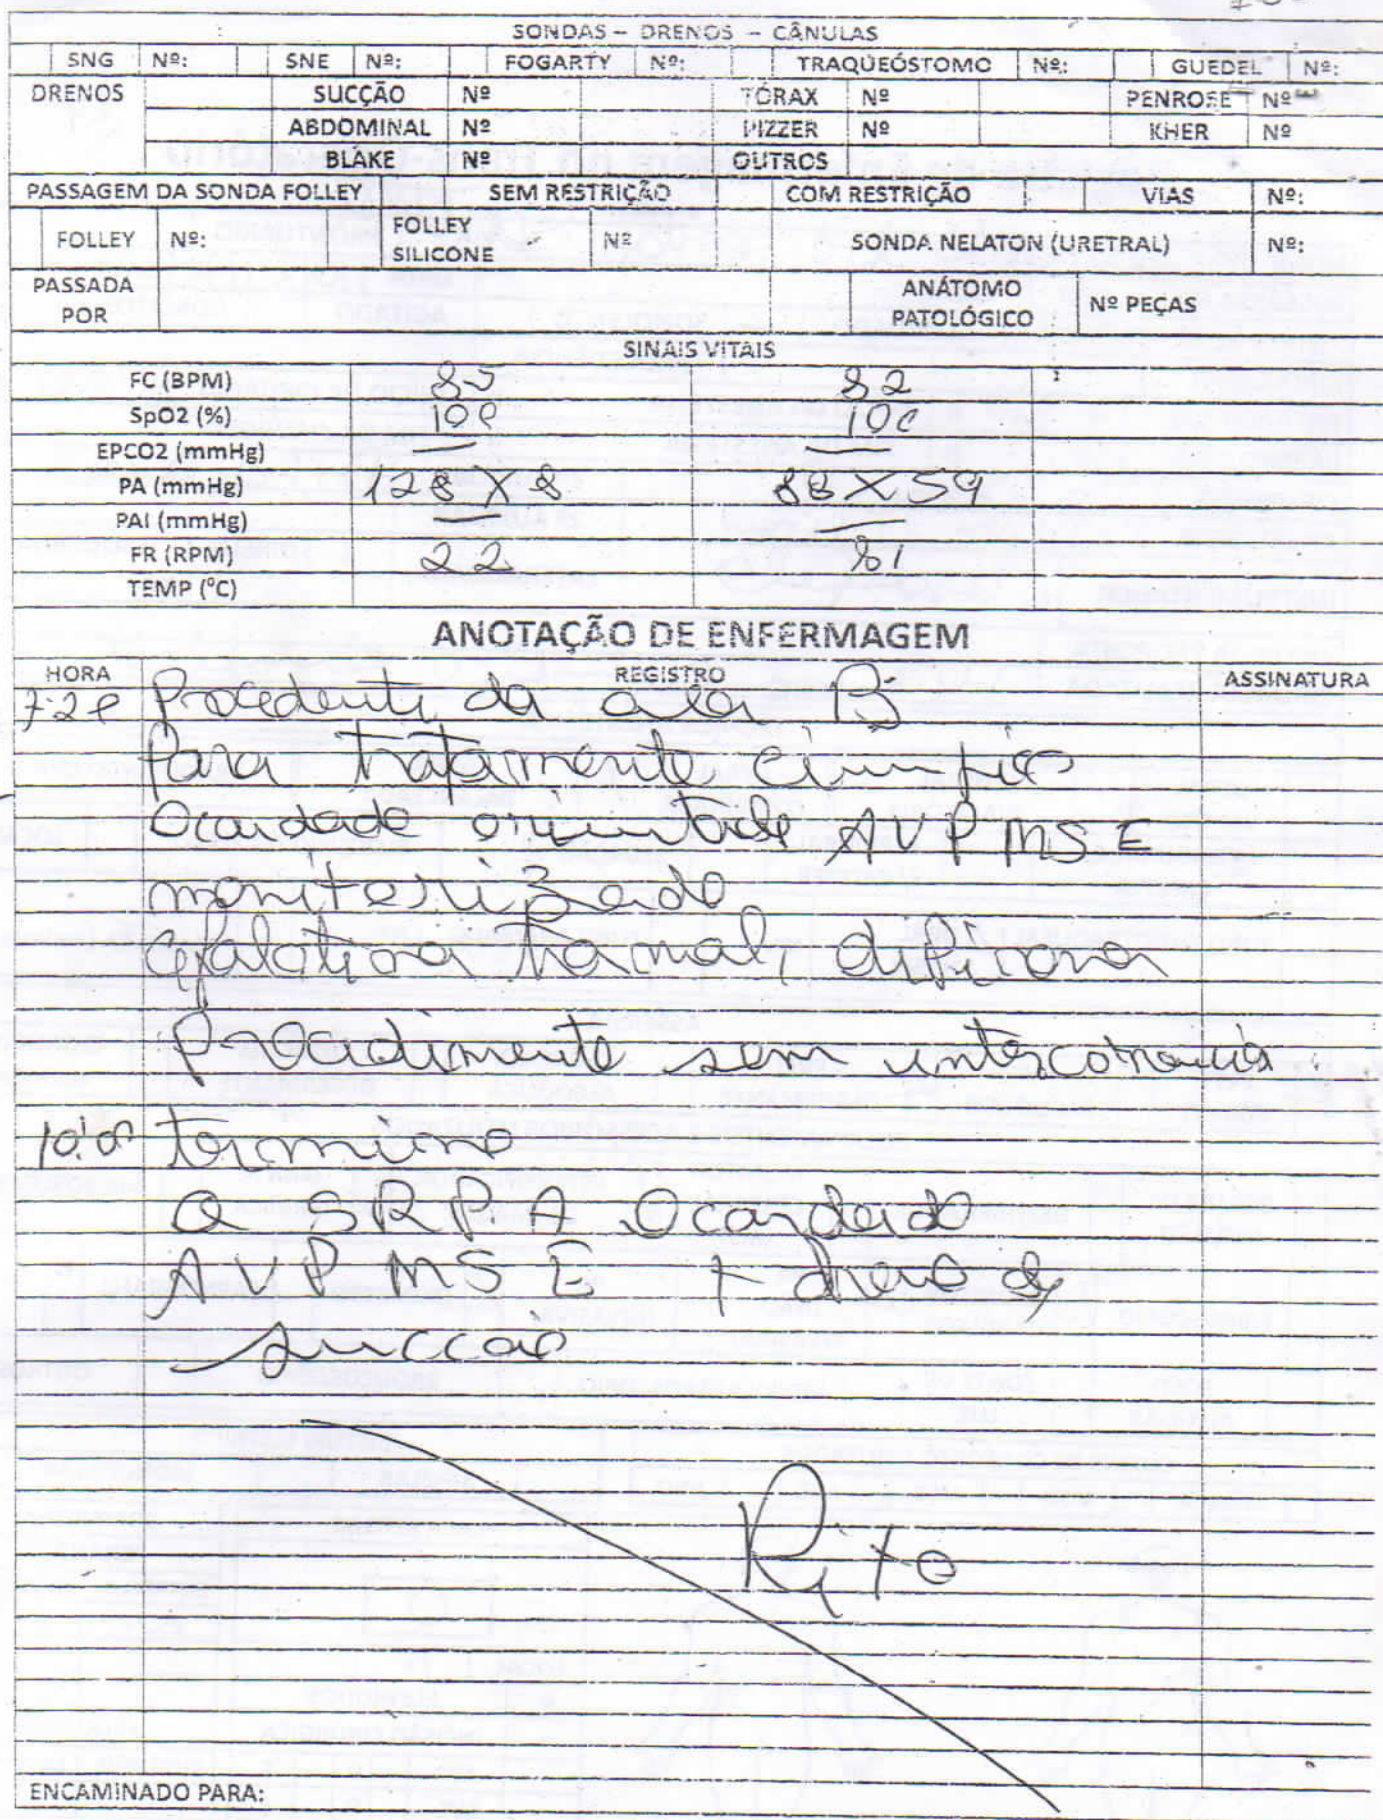 SONDAS – DRENOS – CÂNULAS
SNG Nº: SNE Nº: FOGARTY Nº: TRAQUEÓSTOMO Nº: GUEDEL Nº:
DRENOS SUCÇÃO Nº TÓRAX Nº PENROSE Nº
ABDOMINAL Nº PIZZER Nº KHER Nº
BLAKE Nº OUTROS
PASSAGEM DA SONDA FOLLEY SEM RESTRIÇÃO COM RESTRIÇÃO VIAS Nº:
FOLLEY Nº: FOLLEY SILICONE Nº SONDA NELATON (URETRAL) Nº:
PASSADA POR ANÁTOMO PATOLÓGICO Nº PEÇAS
SINAIS VITAIS
FC (BPM) 85 82
SpO2 (%) 100 100
EPCO2 (mmHg) — —
PA (mmHg) 128 X 8 88 X 59
PAI (mmHg) — —
FR (RPM) 22
TEMP (°C)
ANOTAÇÃO DE ENFERMAGEM
HORA REGISTRO ASSINATURA
7:20 Procedente da ala B
Para tratamento cirurgico
Acordado orientado AVP MSE
monitorizado
dipirona
Procedimento sem intercorrencia
10:00 termino
a SRPA Acordado
AVP MSE + dreno de
succao
Rita
ENCAMINADO PARA: